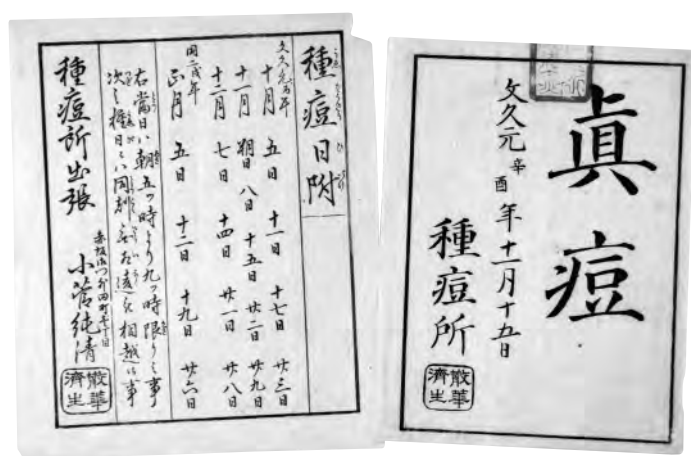 眞痘
文久元辛酉年十一月十五日
種痘所
散華
濟生
種痘日附
文久元酉年
十月 五日 十一日 十七日 廿三日
十一月 朔日 八日 十五日 廿二日 廿九日
十二月 七日 十四日 廿一日 廿八日
同二戌年
正月 五日 十二日 十九日 廿六日
右當日ハ朝五ツ時より九ツ時限り之事
次之種日ニハ同刻無相違相越候事
種痘所出張
小菅純清
散華
濟生